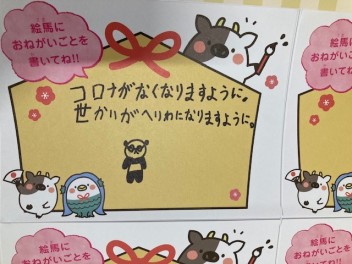 絵馬に
おねがいごとを
書いてね!!
コロナがなくなりますように。
世かいがへいわになりますように。
絵馬に
おねがいごとを
書いてね!!
絵馬に
おねがいごとを